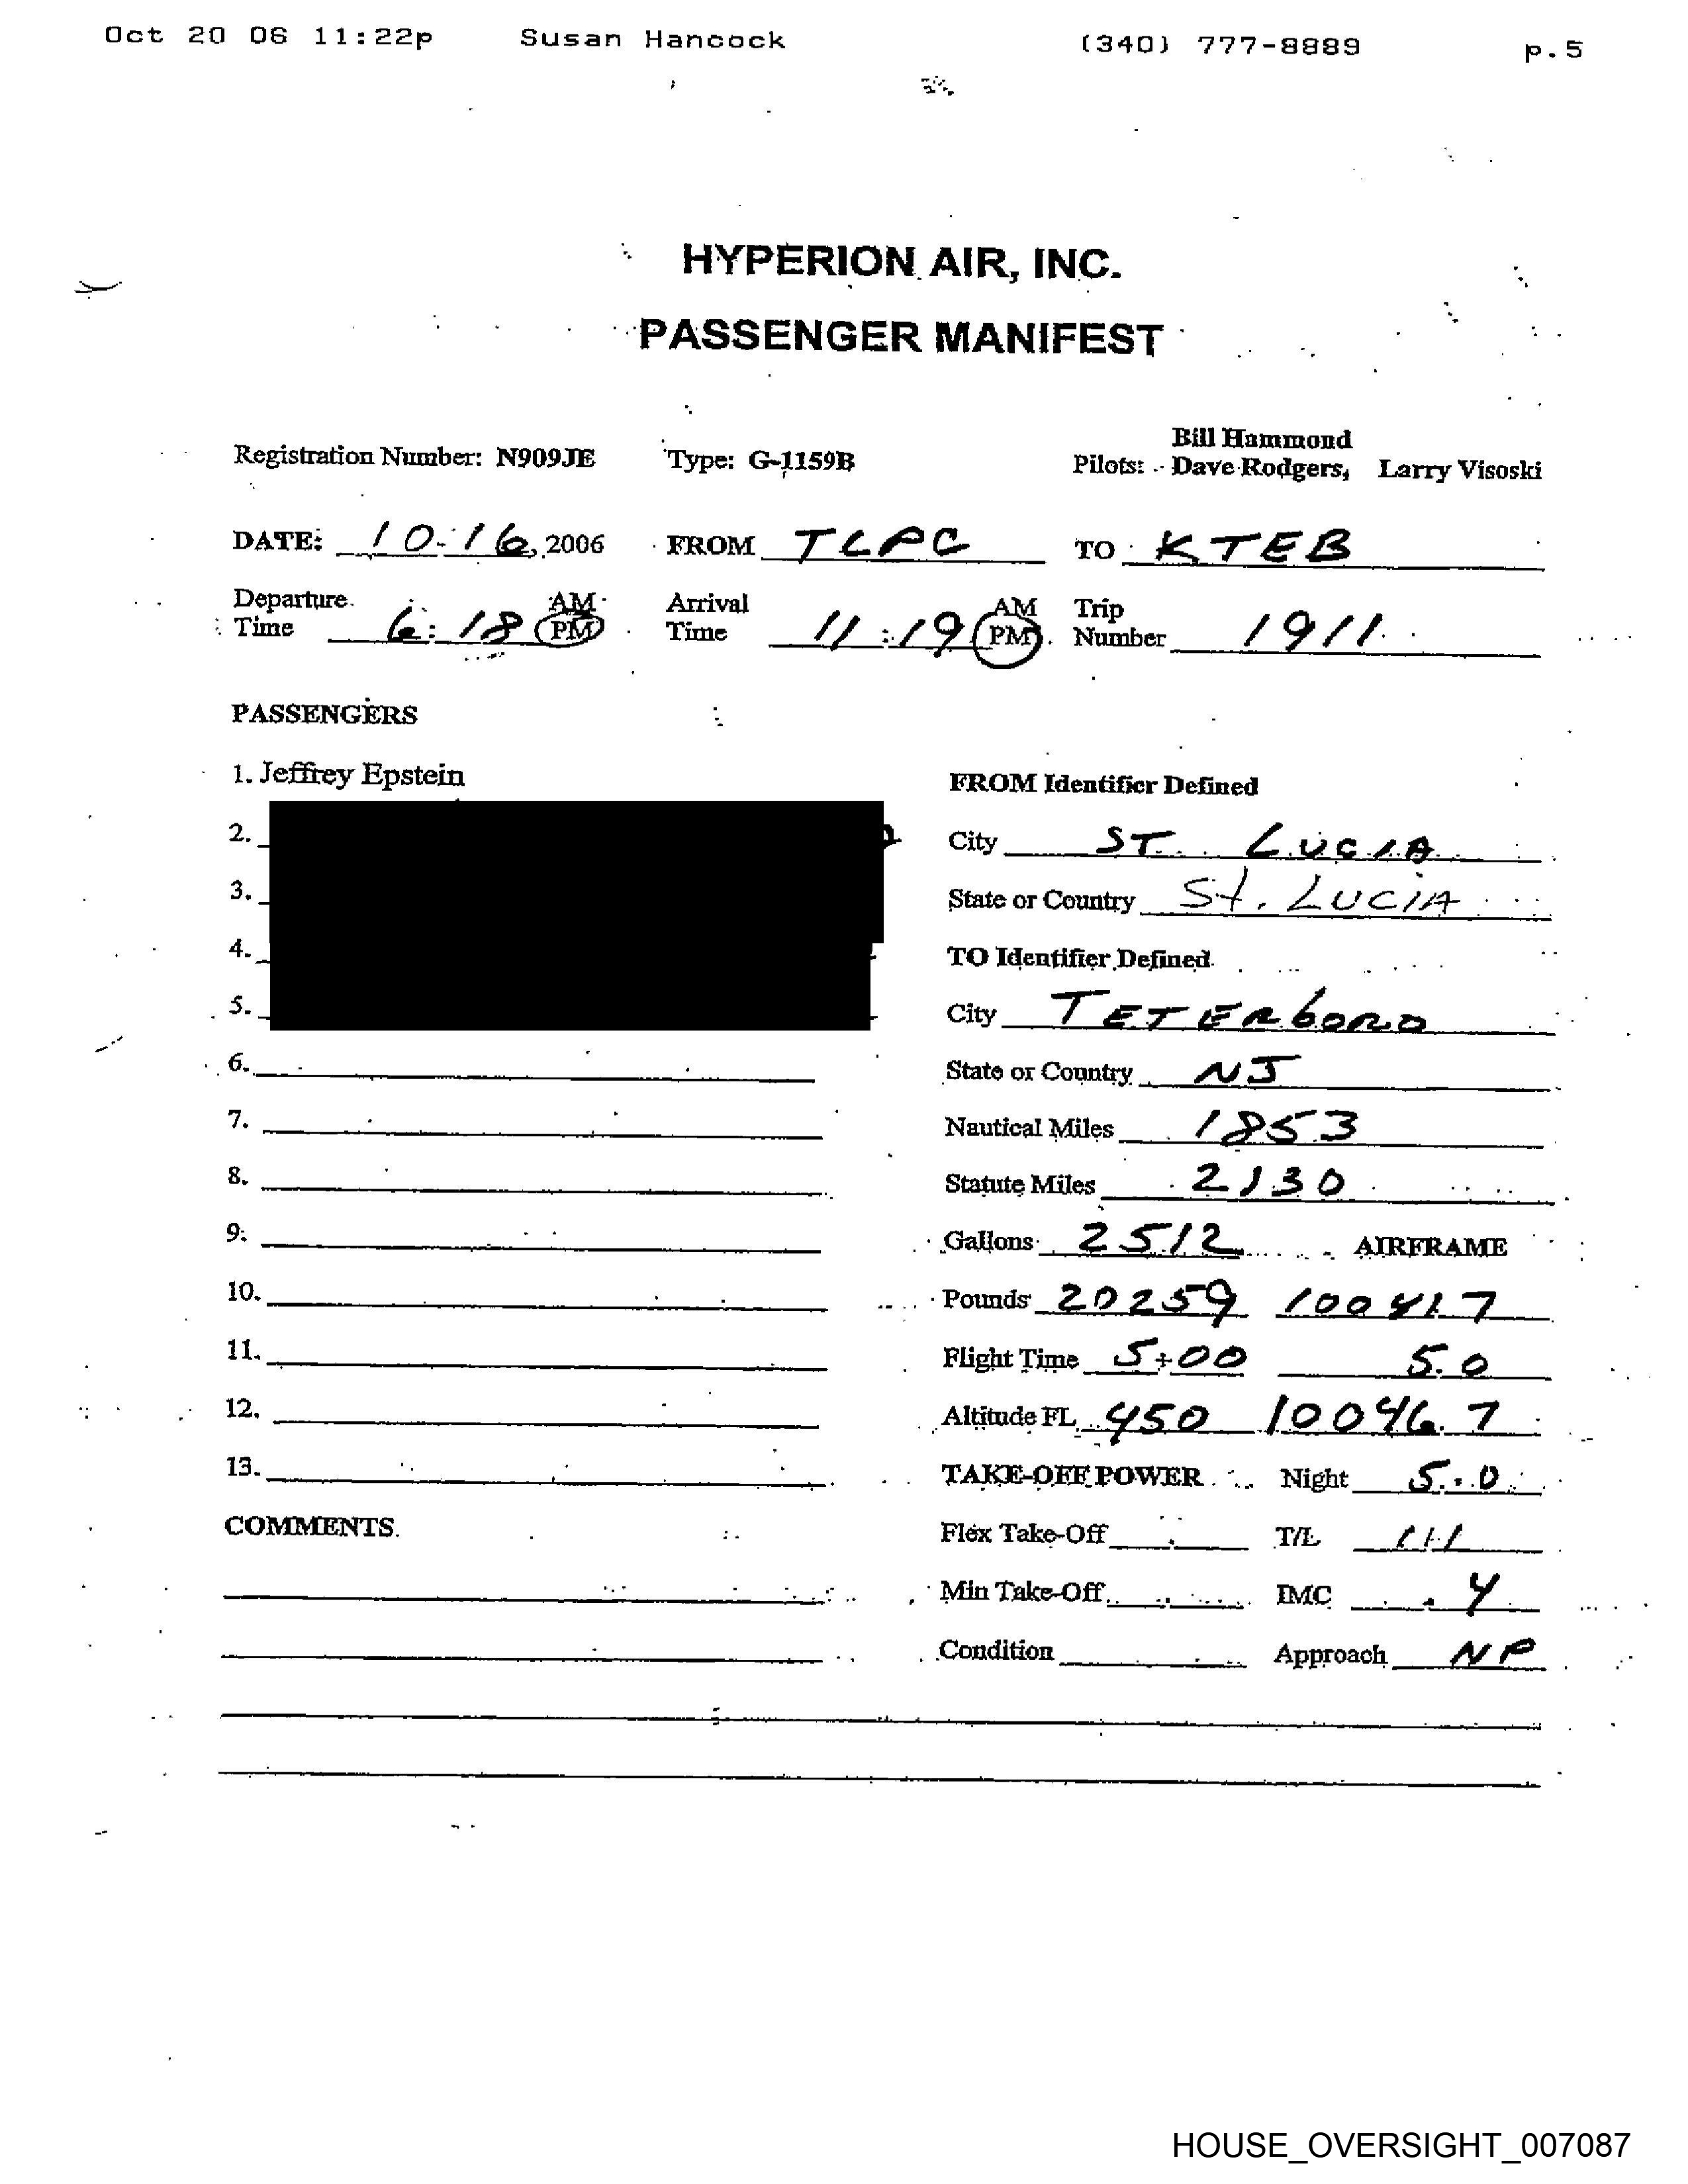 Oct 20 06 11:22p Susan Hancock (340) 777-8889 p.5
HYPERION AIR, INC.
PASSENGER MANIFEST
Bill Hammond
Registration Number: N909JE Type: G-1159B Pilots: Dave Rodgers, Larry Visoski
DATE: 10-16, 2006 FROM TLPC TO KTEB
Departure Time 6:18 AM PM Arrival Time 11:19 AM PM Trip Number 1911
PASSENGERS
1. Jeffrey Epstein
FROM Identifier Defined
2. City ST. LUCIA
3. State or Country St. LUCIA
4. TO Identifier Defined
5. City TETERboro
6. State or Country NJ
7. Nautical Miles 1853
8. Statute Miles 2130
9. Gallons 2512 AIRFRAME
10. Pounds 20259 10041.7
11. Flight Time 5+00 5.0
12. Altitude FL 450 10046.7
13. TAKE-OFF POWER Night 5.0
COMMENTS Flex Take-Off T/L 1/1
Min Take-Off IMC .4
Condition Approach NP
HOUSE_OVERSIGHT_007087